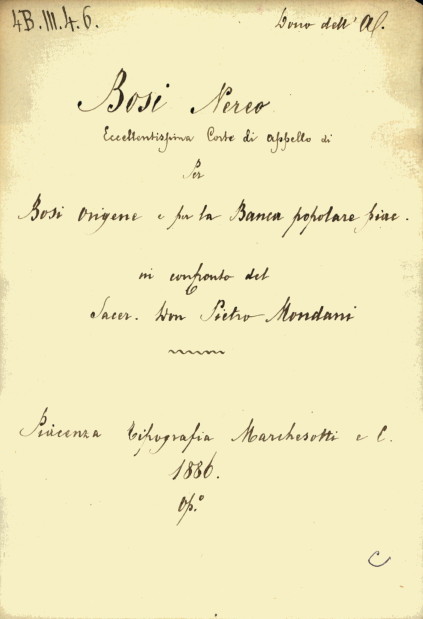 4B.III.4.6.
Dono dell' A.
Bosi Nereo
Eccellentissima Corte di appello di
Per
Bosi Origene e per la Banca popolare piac.
in confronto del
Sacer. Don Pietro Mondani
Piacenza Tipografia Marchesotti e C.
1886.
op.º
C